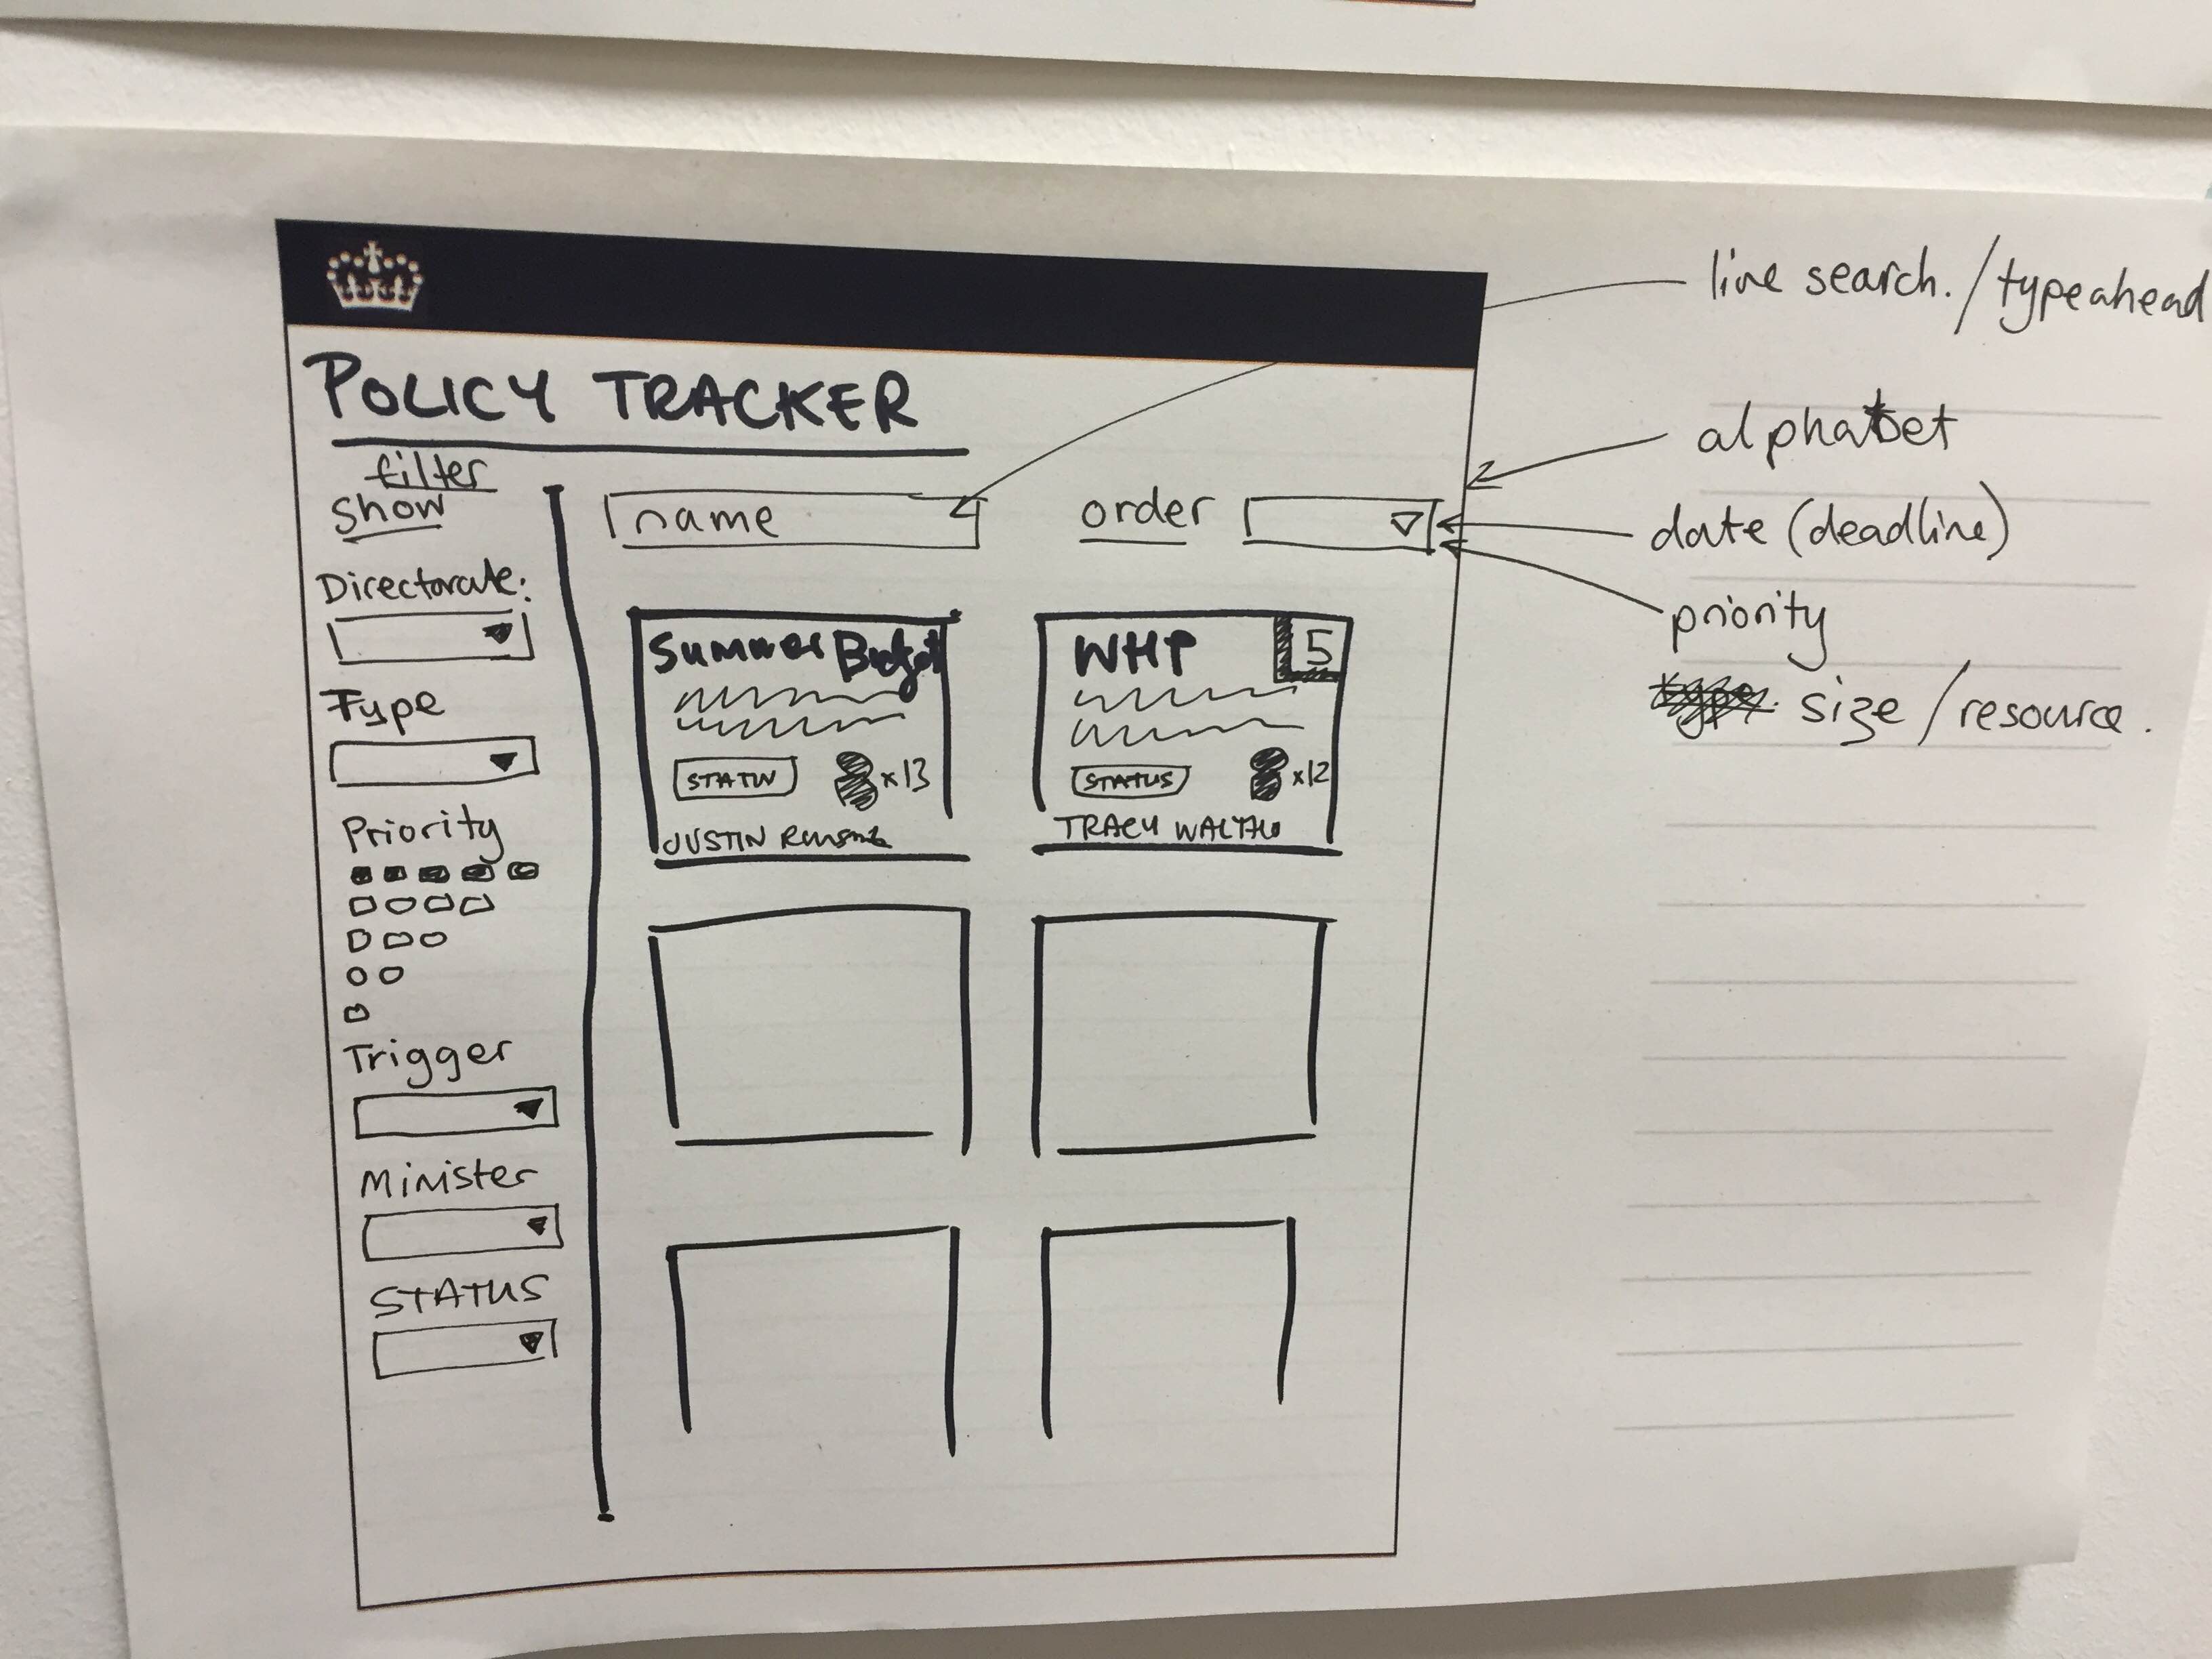 POLICY TRACKER
filter
show
name
order
Directorate:
Type
Priority
Trigger
Minister
STATUS
Summer Budget
x13
JUSTIN
WHP
5
STATUS
x12
TRACY
live search. / typeahead
alphabet
date (deadline)
priority
size / resource.